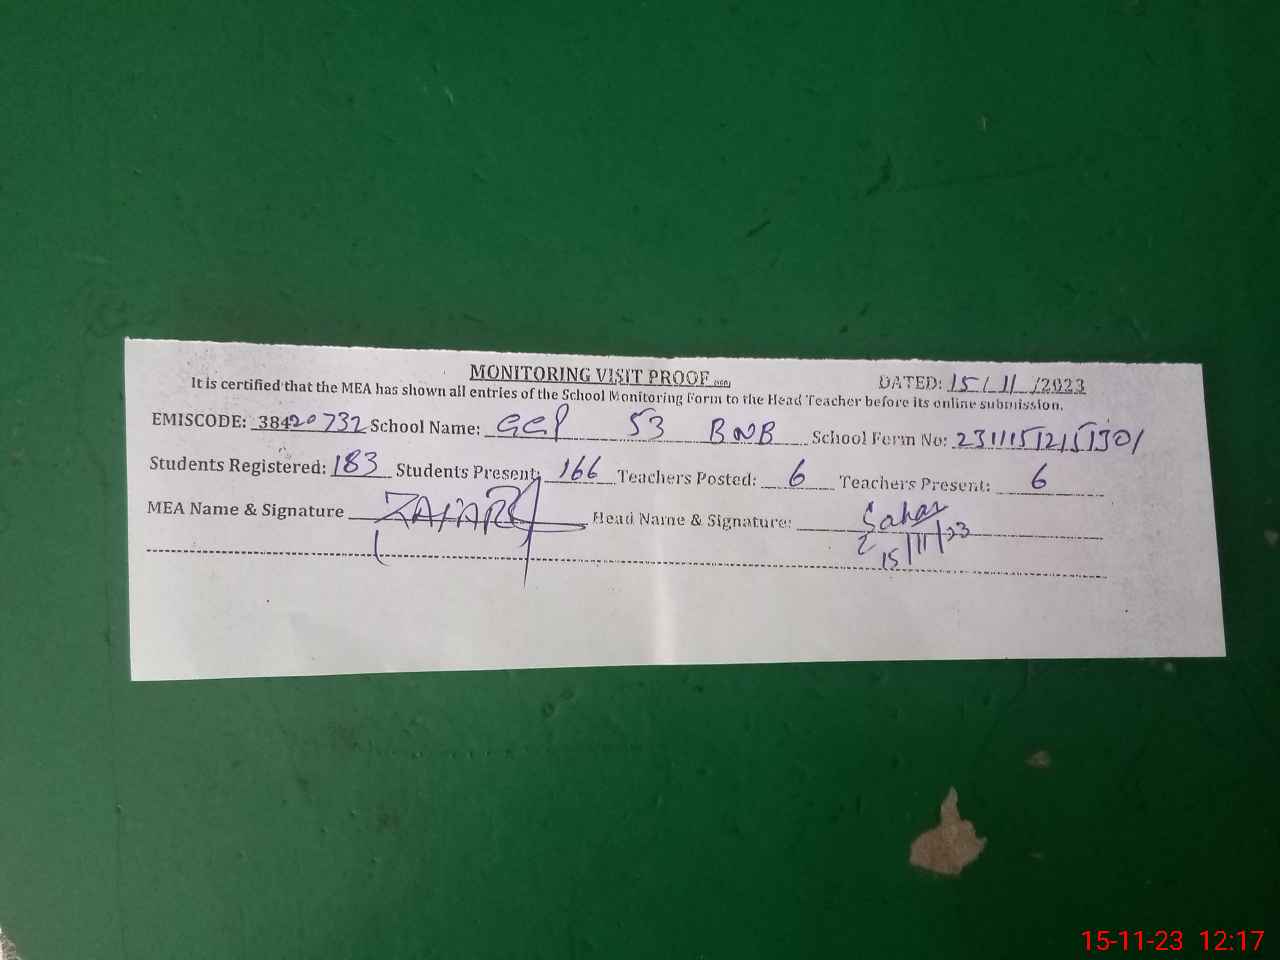 MONITORING VISIT PROOF
DATED: 15/11/2023
It is certified that the MEA has shown all entries of the School Monitoring Form to the Head Teacher before its online submission.
EMISCODE: 38420732 School Name: GGP 53 BNB School Form No: 23111512151301
Students Registered: 183 Students Present: 166 Teachers Posted: 6 Teachers Present: 6
MEA Name & Signature ZAFAR Head Name & Signature: Sahar
15/11/23
15-11-23 12:17